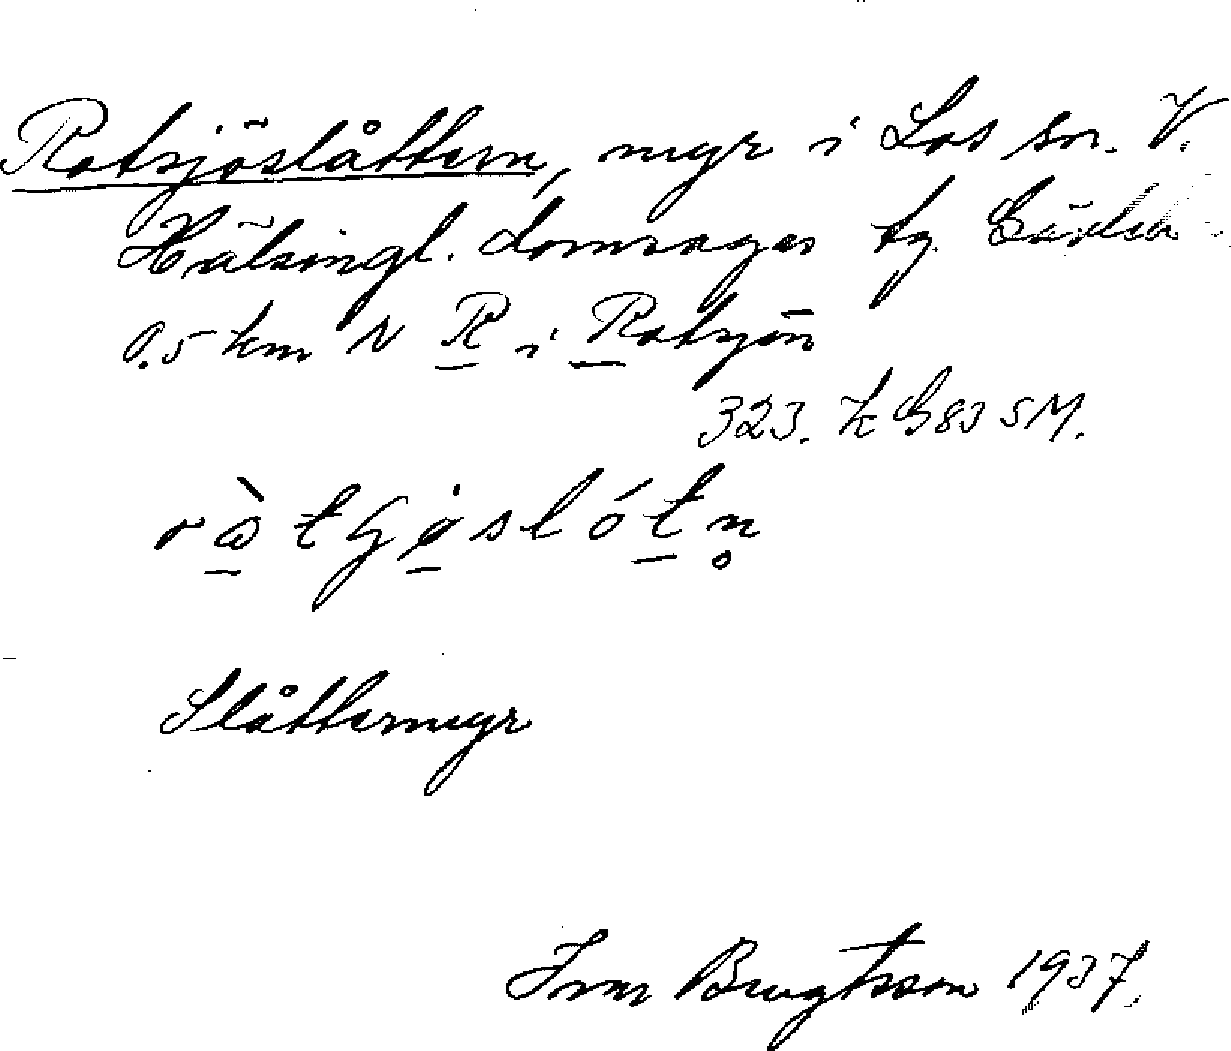 Rotsjöslåttern, myr i Los sn. V.
Hälsingl. domsagas tg. Gävleb.
0.5 km N R i Rotsjön
323. k G83 SM.
Slåttermyr
Ivar Bengtsson 1937.